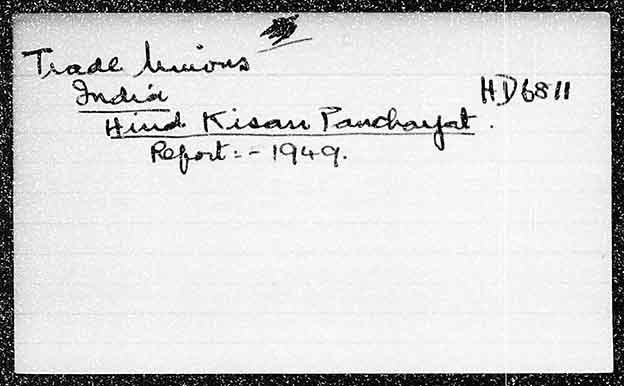 Trade Unions
India HD6811
Hind Kisan Panchayat.
Report:- 1949.